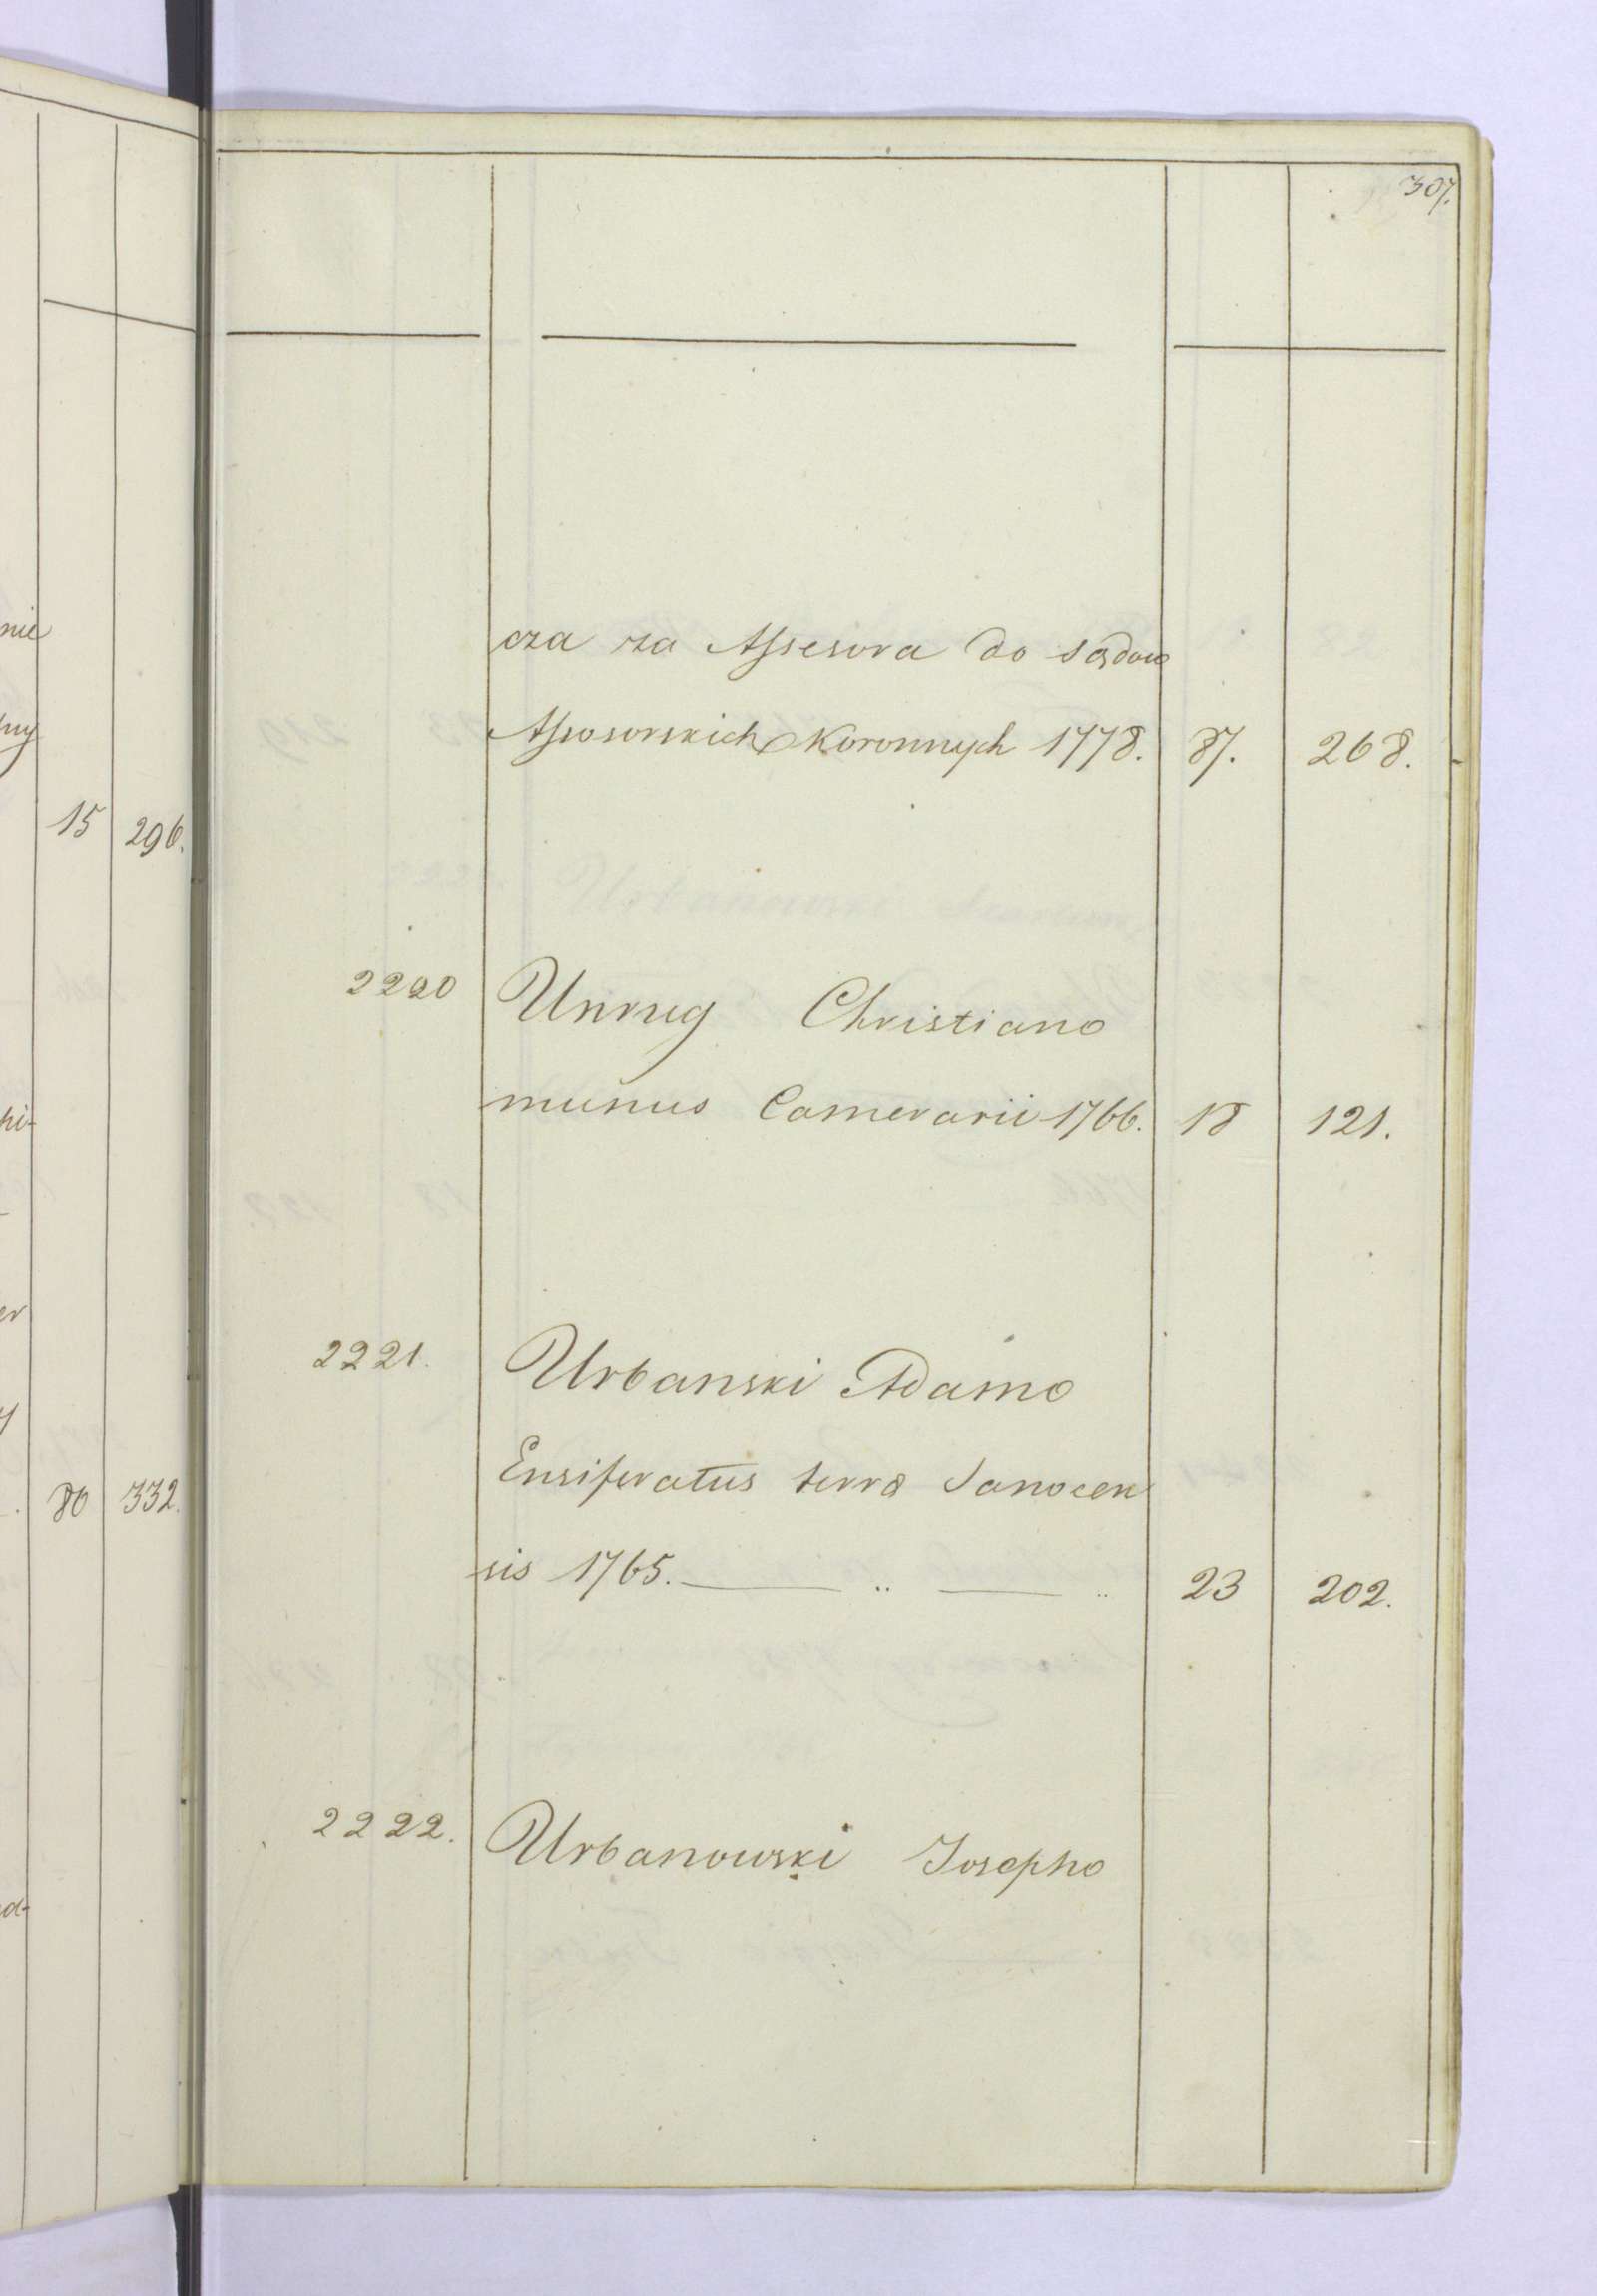 307.
cza za Assesora do Sądow
Assosorskich Koronnych 1778. 87. 268.
2220 Unrug Christiano
munus Camerarii 1766. 18 121.
2221. Urbanski Adamo
Ensiferatus terræ Sanocen
sis 1765. — „ — „ 23 202.
2222. Urbanowski Josepho
nie
15 296.
hi-
er
80 332.